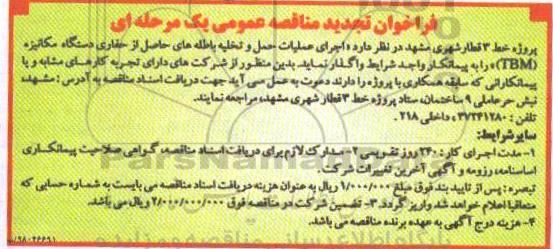 فراخوان تجدید مناقصه عمومی یک مرحله ای
پروژه خط ۳ قطار شهری مشهد در نظر دارد «اجرای عملیات حمل و تخلیه باطله های حاصل از حفاری دستگاه مکانیزه
(TBM)» را به پیمانکار واجد شرایط واگذار نماید. بدین منظور از شرکت های دارای تجربه کارهای مشابه و یا
پیمانکارانی که سابقه همکاری با پروژه را دارند دعوت به عمل می آید جهت دریافت اسناد مناقصه به آدرس : مشهد،
نبش حر عاملی ۹ ساختمان، ستاد پروژه خط ۳ قطار شهری مشهد، مراجعه نمایند.
تلفن : ۳۷۲۴۱۲۸۰ ، داخلی ۲۱۸ .
سایر شرایط:
۱- مدت اجرای کار : ۲۴۰ روز تقویمی ۲- مدارک لازم برای دریافت اسناد مناقصه، گواهی صلاحیت پیمانکاری
اساسنامه، رزومه و آگهی آخرین تغییرات شرکت.
تبصره : پس از تایید بند فوق مبلغ ۱/۰۰۰/۰۰۰ ریال به عنوان هزینه دریافت اسناد مناقصه می بایست به شماره حسابی که
متعاقبا اعلام خواهد شد واریز گردد. ۳- تضمین شرکت در مناقصه فوق ۲/۰۰۰/۰۰۰/۰۰۰ ریال می باشد.
۴- هزینه درج آگهی به عهده برنده مناقصه می باشد.
/۹۸۰۴۶۶۹۱
ParsNamadData